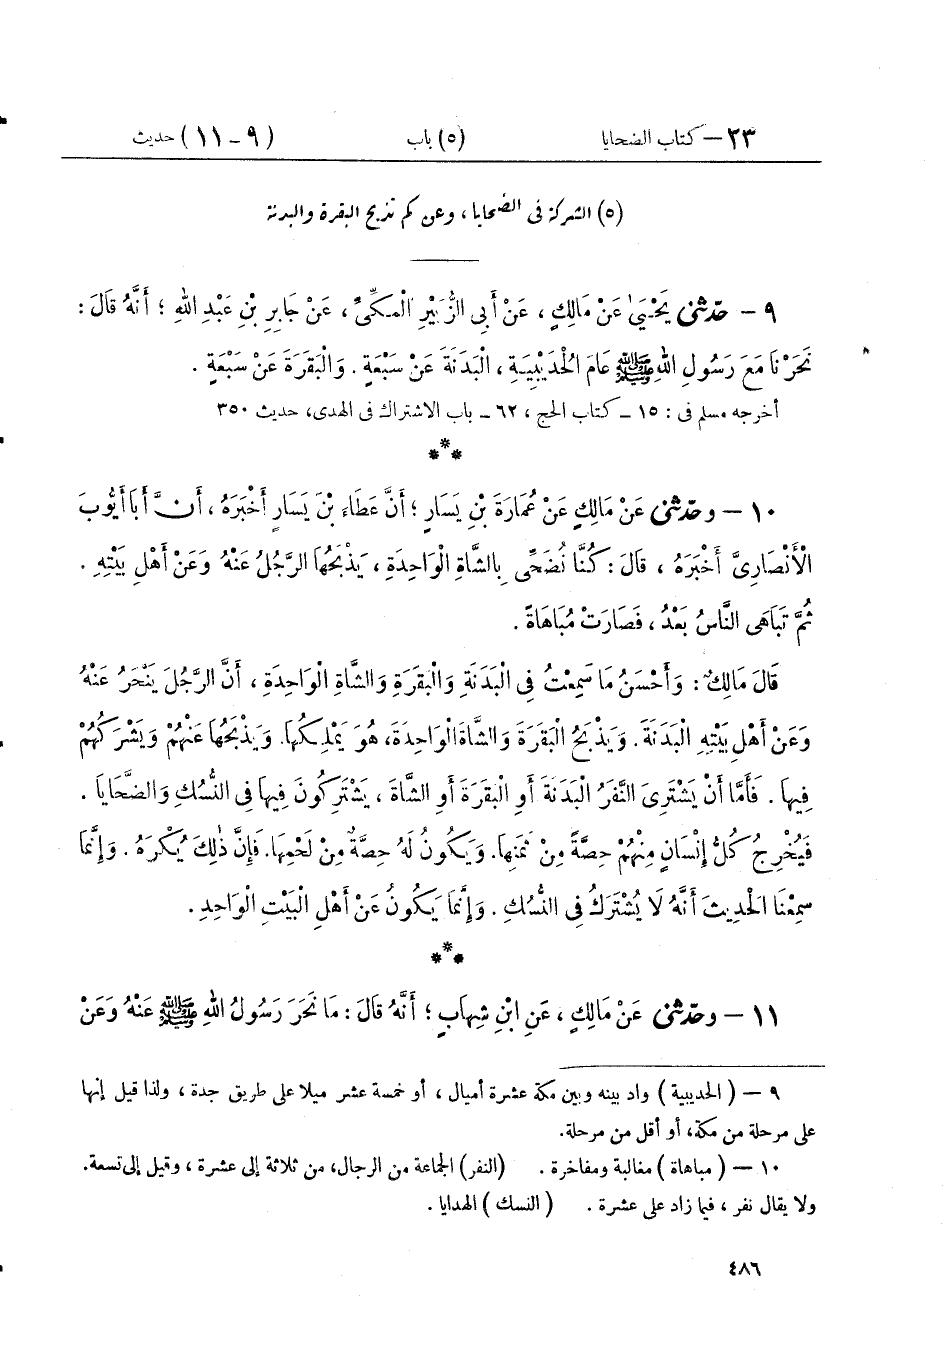 ٢٣ – كتاب الضحايا (٥) باب (٩ – ١١) حديث
(٥) الشركة فى الضحايا ، وعن كم تذبح البقرة والبدنة
٩ – حَدَّثَنِى يَحْيَىٰ عَنْ مَالِكٍ ، عَنْ أَبِى الزُّبَيْرِ الْمَكِّىِّ ، عَنْ جَابِرِ بْنِ عَبْدِ اللهِ ؛ أَنَّهُ قَالَ :
نَحَرْنَا مَعَ رَسُولِ اللهِ ﷺ عَامَ الْحُدَيْبِيَةِ ، الْبَدَنَةَ عَنْ سَبْعَةٍ . وَالْبَقَرَةَ عَنْ سَبْعَةٍ .
أخرجه مسلم فى : ١٥ – كتاب الحج ، ٦٢ – باب الاشتراك فى الهدى، حديث ٣٥٠
***
١٠ – وحَدَّثَنِى عَنْ مَالِكٍ عَنْ عُمَارَةَ بْنِ يَسَارٍ ؛ أَنَّ عَطَاءَ بْنَ يَسَارٍ أَخْبَرَهُ ، أَنَّ أَبَا أَيُّوبَ
الْأَنْصَارِىَّ أَخْبَرَهُ ، قَالَ : كُنَّا نُضَحِّى بِالشَّاةِ الْوَاحِدَةِ ، يَذْبَحُهَا الرَّجُلُ عَنْهُ وَعَنْ أَهْلِ بَيْتِهِ .
ثُمَّ تَبَاهَى النَّاسُ بَعْدُ ، فَصَارَتْ مُبَاهَاةً .
قَالَ مَالِكٌ : وَأَحْسَنُ مَا سَمِعْتُ فِى الْبَدَنَةِ وَالْبَقَرَةِ وَالشَّاةِ الْوَاحِدَةِ ، أَنَّ الرَّجُلَ يَنْحَرُ عَنْهُ
وَعَنْ أَهْلِ بَيْتِهِ الْبَدَنَةَ . وَيَذْبَحُ الْبَقَرَةَ وَالشَّاةَ الْوَاحِدَةَ، هُوَ يَمْلِكُهَا. وَيَذْبَحُهَا عَنْهُمْ وَيَشْرَكُهُمْ
فِيهَا . فَأَمَّا أَنْ يَشْتَرِىَ النَّفَرُ الْبَدَنَةَ أَوِ الْبَقَرَةَ أَوِ الشَّاةَ ، يَشْتَرِكُونَ فِيهَا فِى النُّسُكِ وَالضَّحَايَا .
فَيُخْرِجُ كُلُّ إِنْسَانٍ مِنْهُمْ حِصَّةً مِنْ ثَمَنِهَا. وَيَكُونُ لَهُ حِصَّةٌ مِنْ لَحْمِهَا. فَإِنَّ ذٰلِكَ يُكْرَهُ . وَإِنَّمَا
سَمِعْنَا الْحَدِيثَ أَنَّهُ لَا يُشْتَرَكُ فِى النُّسُكِ . وَإِنَّمَا يَكُونُ عَنْ أَهْلِ الْبَيْتِ الْوَاحِدِ .
***
١١ – وحَدَّثَنِى عَنْ مَالِكٍ ، عَنِ ابْنِ شِهَابٍ ؛ أَنَّهُ قَالَ : مَا نَحَرَ رَسُولُ اللهِ ﷺ عَنْهُ وَعَنْ
٩ – ( الحديبية ) واد بينه وبين مكة عشرة أميال ، أو خمسة عشر ميلا على طريق جدة ، ولذا قيل إنها
على مرحلة من مكة، أو أقل من مرحلة.
١٠ – ( مباهاة ) مغالبة ومفاخرة . (النفر) الجماعة من الرجال، من ثلاثة إلى عشرة ، وقيل إلى تسعة.
ولا يقال نفر ، فيما زاد على عشرة . ( النسك ) الهدايا .
٤٨٦